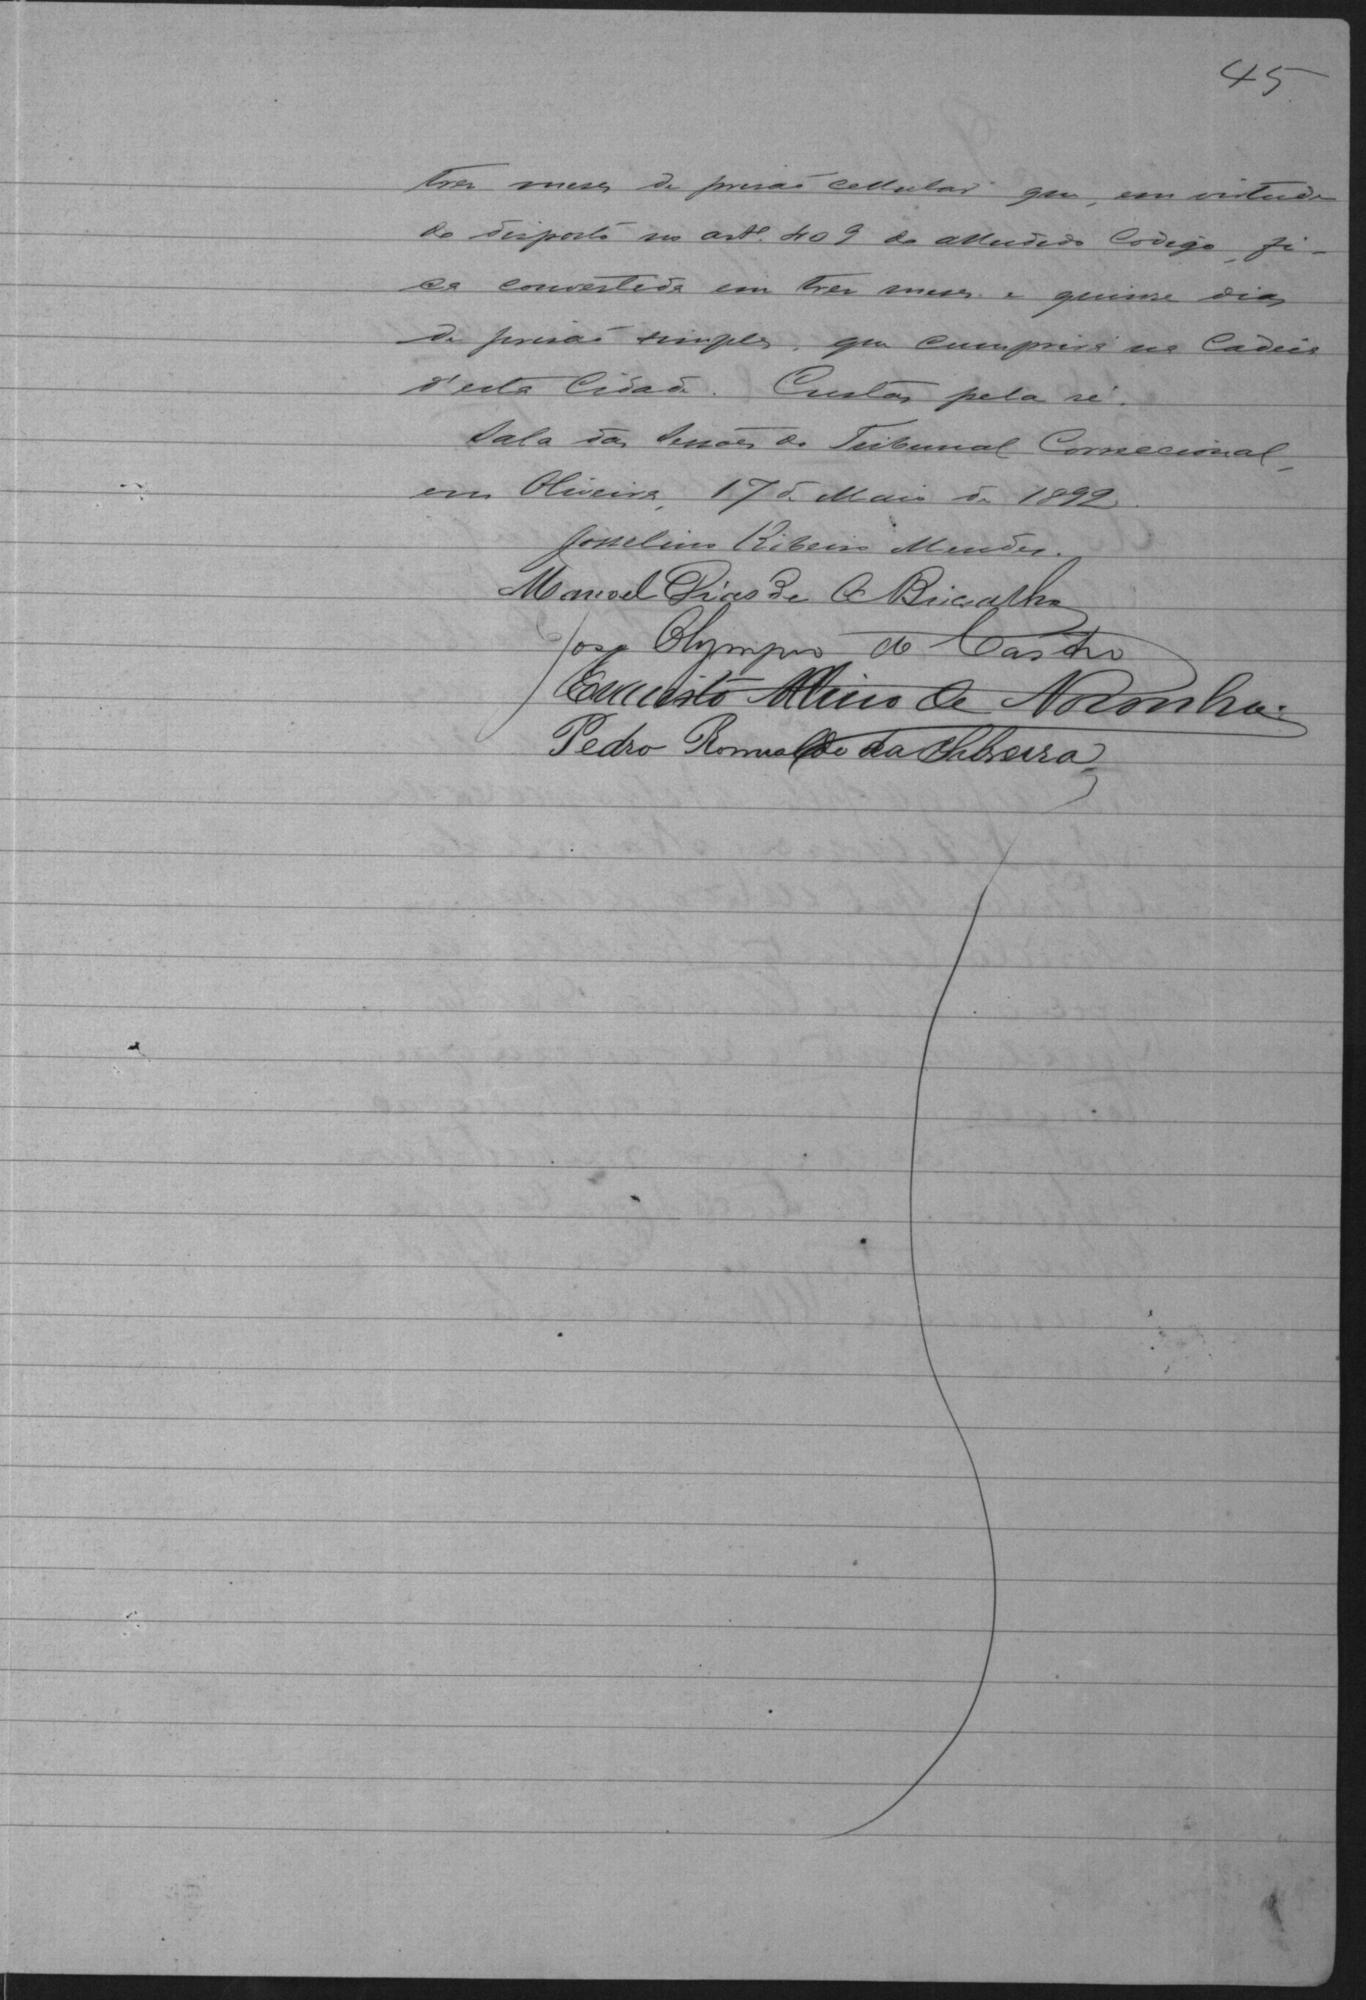 45
tres meses de prisaõ cellular que, em virtude
do disposto no artº. 409 do alludido Codigo, fi-
ca convertida em tres meses e quinse dias
de prisaõ simples, que cumprirá na Cadeia
d'esta Cidade. Custas pela ré.
Sala das Sessões do Tribunal Correccional,
em Oliveira, 17 de Maio de 1892.
Josselino Ribeiro Mendes.
Manoel Dias de O Bicalho
José Olympio de Castro
Evaristo Albino de Noronha.
Pedro Romualdo da Silveira